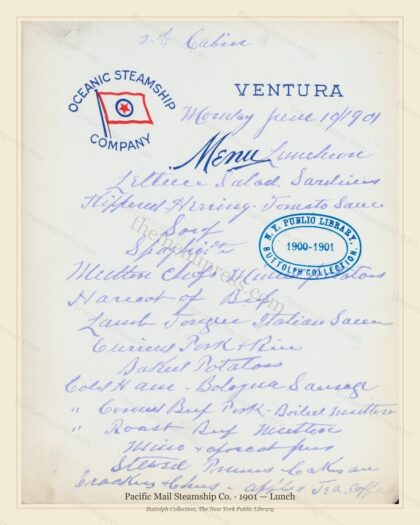 2nd Cabin
OCEANIC STEAMSHIP
COMPANY
VENTURA
Monday June 10/1901
Menu Luncheon
Lettuce Salad. Sardines
Kippered Herring. Tomato Sauce
Soup
Spaghetti
N.Y. PUBLIC LIBRARY,
1900-1901
BUTTOLPH COLLECTION.
Mutton Chops Potatoes
Haricot of Beef
Lamb Tongue Italian Sauce
Pork & Rice
Baked Potatoes
Cold Ham - Bologna Sausage
" Corned Beef Pork - Boiled Mutton
" Roast Beef Mutton
Mince & apricot pies
Stewed Prunes - Cakes
Crackers & Chees - apples Tea. Coffe
themenupress.com
Pacific Mail Steamship Co. · 1901 — Lunch
Buttolph Collection, The New York Public Library